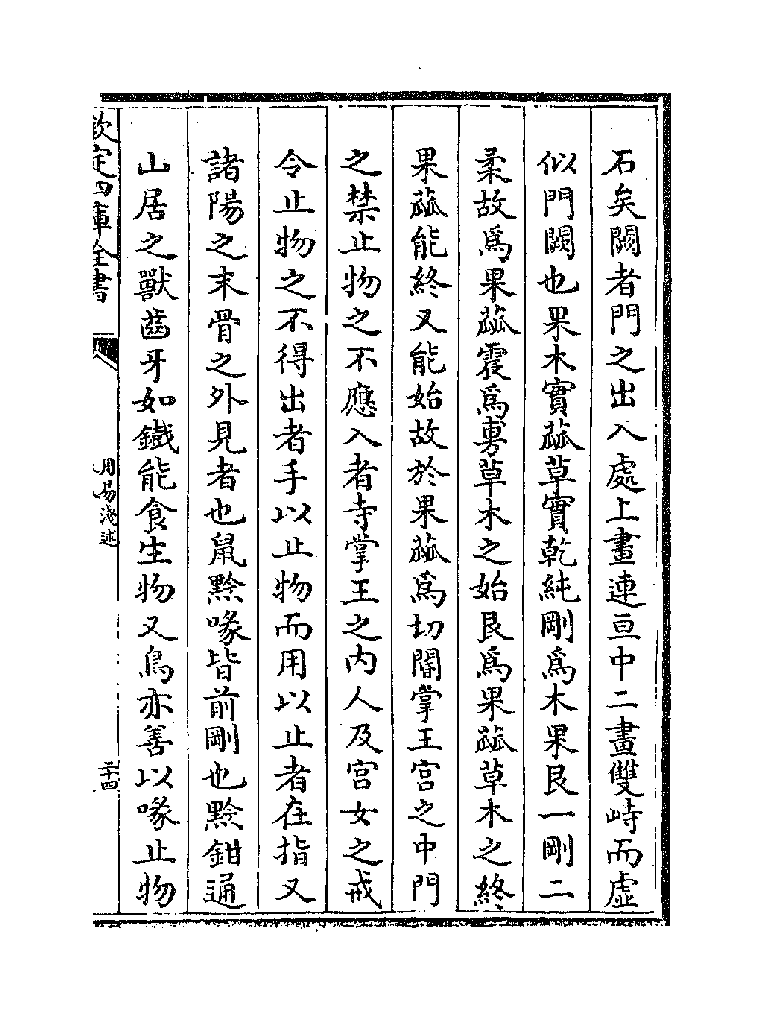 石矣闕者門之出入處上畫連亘中二畫雙峙而虛
似門闕也果木實蓏草實乾純剛為木果艮一剛二
柔故為果蓏震為旉草木之始艮為果蓏草木之終
果蓏能終又能始故於果蓏為切閽掌王宫之中門
之禁止物之不應入者寺掌王之内人及宫女之戒
令止物之不得出者手以止物而用以止者在指又
諸陽之末骨之外見者也鼠黔喙皆前剛也黔鉗通
山居之獸齒牙如鐵能食生物又鳥亦善以喙止物
欽定四庫全書
周易淺述
二十四